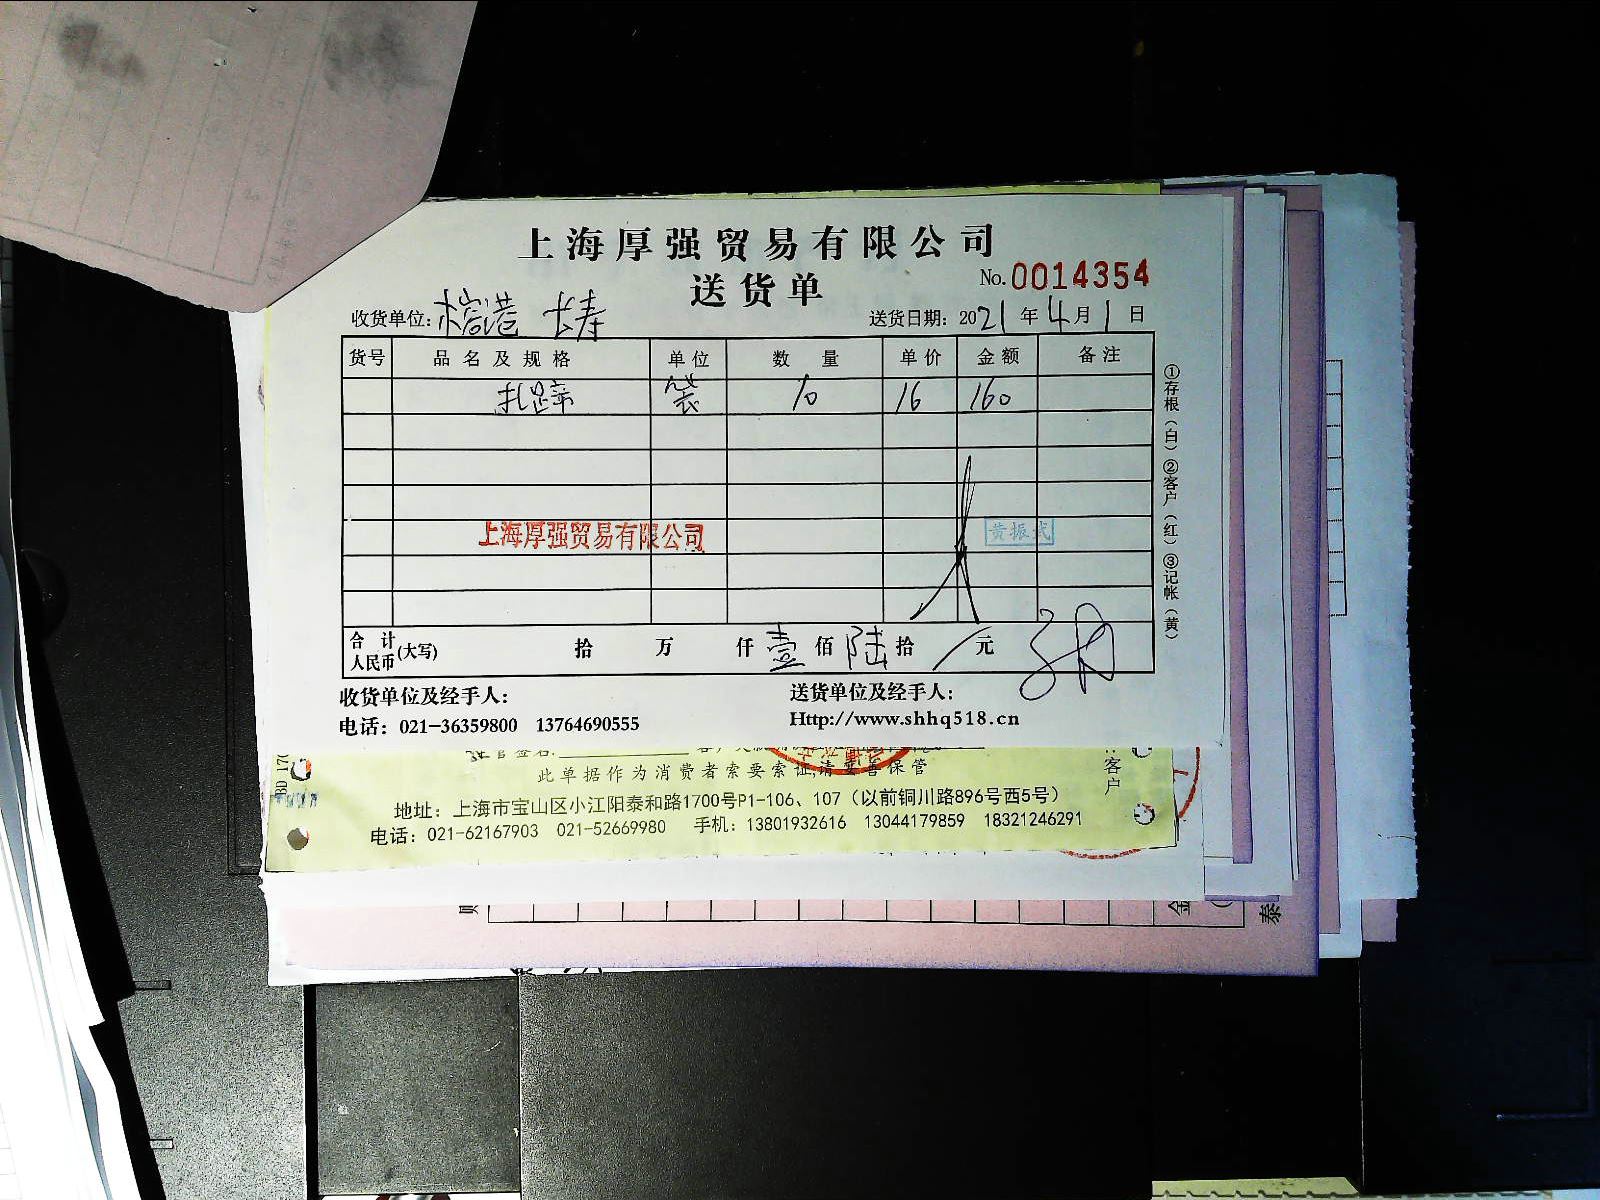 上海厚强贸易有限公司
送货单
No.0014354
收货单位: 榕港 长寿
送货日期: 2021年4月1日
货号 品名及规格 单位 数量 单价 金额 备注
扎蹄 袋 10 16 160
上海厚强贸易有限公司
黄振武
合计人民币(大写) 拾 万 仟 壹 佰 陆 拾 元
收货单位及经手人:
送货单位及经手人:
电话: 021-36359800 13764690555
Http://www.shhq518.cn
①存根(白)②客户(红)③记帐(黄)
此单据作为消费者索要索证,请妥善保管
地址: 上海市宝山区小江阳泰和路1700号P1-106、107(以前铜川路896号西5号)
电话: 021-62167903 021-52669980 手机: 13801932616 13044179859 18321246291
客户
金
泰